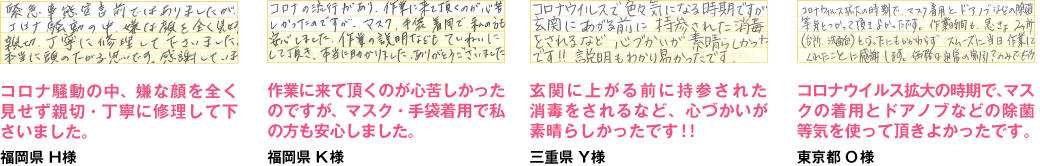 緊急事態宣言前ではありましたが、
コロナ騒動の中、嫌な顔を全く見せず
親切、丁寧に修理して下さいました。
本当に頭の下がる思いです。感謝していま
コロナ騒動の中、嫌な顔を全く
見せず親切・丁寧に修理して下
さいました。
福岡県 H様
コロナの流行があり、作業に来て頂くのが心苦
しかったのですが、マスク、手袋着用で私の方も
安心しました。作業の説明なども ていねいに
して頂き、本当に助かりました。ありがとうございました
作業に来て頂くのが心苦しかった
のですが、マスク・手袋着用で私
の方も安心しました。
福岡県 K様
コロナウイルスで色々気になる時期ですが
玄関にあがる前に 持参された消毒
をされるなど、心づかいが 素晴らしかった
です!! 説明もわかり易かったです。
玄関に上がる前に持参された
消毒をされるなど、心づかいが
素晴らしかったです!!
三重県 Y様
コロナウイルス拡大の時期で、マスク着用とドアノブなどの除菌
等気をつかって頂きよかったです。作業時間も、急きょ2ヶ所
(台所、洗面台)となったにもかかわらず スムーズに当日作業して
くれたことに感謝します。
コロナウイルス拡大の時期で、マス
クの着用とドアノブなどの除菌
等気を使って頂きよかったです。
東京都 O様